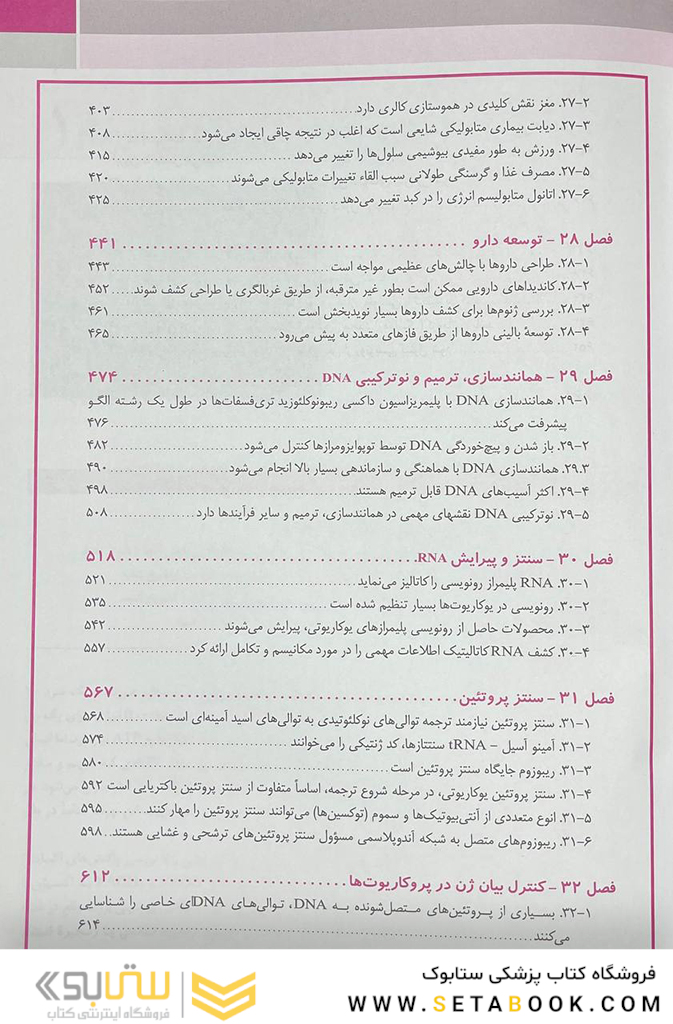 ۲-۲۷. مغز نقش کلیدی در هموستازی کالری دارد ........ ۴۰۳
۳-۲۷. دیابت بیماری متابولیکی شایعی است که اغلب در نتیجه چاقی ایجاد می‌شود ........ ۴۰۸
۴-۲۷. ورزش به طور مفیدی بیوشیمی سلول‌ها را تغییر می‌دهد ........ ۴۱۵
۵-۲۷. مصرف غذا و گرسنگی طولانی سبب القاء تغییرات متابولیکی می‌شوند ........ ۴۲۰
۶-۲۷. اتانول متابولیسم انرژی را در کبد تغییر می‌دهد ........ ۴۲۵
فصل ۲۸ - توسعه دارو ........ ۴۴۱
۱-۲۸. طراحی داروها با چالش‌های عظیمی مواجه است ........ ۴۴۳
۲-۲۸. کاندیداهای دارویی ممکن است بطور غیر مترقبه، از طریق غربالگری یا طراحی کشف شوند ..... ۴۵۲
۳-۲۸. بررسی ژنوم‌ها برای کشف داروها بسیار نویدبخش است ........ ۴۶۱
۴-۲۸. توسعهٔ بالینی داروها از طریق فازهای متعدد به پیش می‌رود ........ ۴۶۵
فصل ۲۹ - همانندسازی، ترمیم و نوترکیبی DNA ........ ۴۷۴
۱-۲۹. همانندسازی DNA با پلیمریزاسیون داکسی ریبونوکلئوزید تری‌فسفات‌ها در طول یک رشته الگو
پیشرفت می‌کند ........ ۴۷۶
۲-۲۹. باز شدن و پیچ‌خوردگی DNA توسط توپوایزومرازها کنترل می‌شود ........ ۴۸۲
۲۹.۳. همانندسازی DNA با هماهنگی و سازماندهی بسیار بالا انجام می‌شود ........ ۴۹۰
۴-۲۹. اکثر آسیب‌های DNA قابل ترمیم هستند ........ ۴۹۸
۵-۲۹. نوترکیبی DNA نقشهای مهمی در همانندسازی، ترمیم و سایر فرآیندها دارد ........ ۵۰۸
فصل ۳۰ - سنتز و پیرایش RNA ........ ۵۱۸
۱-۳۰. RNA پلیمراز رونویسی را کاتالیز می‌نماید ........ ۵۲۱
۲-۳۰. رونویسی در یوکاریوت‌ها بسیار تنظیم شده است ........ ۵۳۵
۳-۳۰. محصولات حاصل از رونویسی پلیمرازهای یوکاریوتی، پیرایش می‌شوند ........ ۵۴۲
۴-۳۰. کشف RNA کاتالیتیک اطلاعات مهمی را در مورد مکانیسم و تکامل ارائه کرد ........ ۵۵۷
فصل ۳۱ - سنتز پروتئین ........ ۵۶۷
۱-۳۱. سنتز پروتئین نیازمند ترجمه توالی‌های نوکلئوتیدی به توالی‌های اسید آمینه‌ای است ........ ۵۶۸
۲-۳۱. آمینو آسیل - tRNA سنتتازها، کد ژنتیکی را می‌خوانند ........ ۵۷۴
۳-۳۱. ریبوزوم جایگاه سنتز پروتئین است ........ ۵۸۰
۴-۳۱. سنتز پروتئین یوکاریوتی، در مرحله شروع ترجمه، اساساً متفاوت از سنتز پروتئین باکتریایی است ۵۹۲
۵-۳۱. انوع متعددی از آنتی‌بیوتیک‌ها و سموم (توکسین‌ها) می‌توانند سنتز پروتئین را مهار کنند ........ ۵۹۵
۶-۳۱. ریبوزوم‌های متصل به شبکه آندوپلاسمی مسؤول سنتز پروتئین‌های ترشحی و غشایی هستند.. ۵۹۸
فصل ۳۲ - کنترل بیان ژن در پروکاریوت‌ها ........ ۶۱۲
۱-۳۲. بسیاری از پروتئین‌های متصل‌شونده به DNA، توالی‌های DNAای خاصی را شناسایی
می‌کنند ........ ۶۱۴
فروشگاه کتاب پزشکی ستابوک
WWW.SETABOOK.COM
ستابوک
فروشگاه اینترنتی کتاب